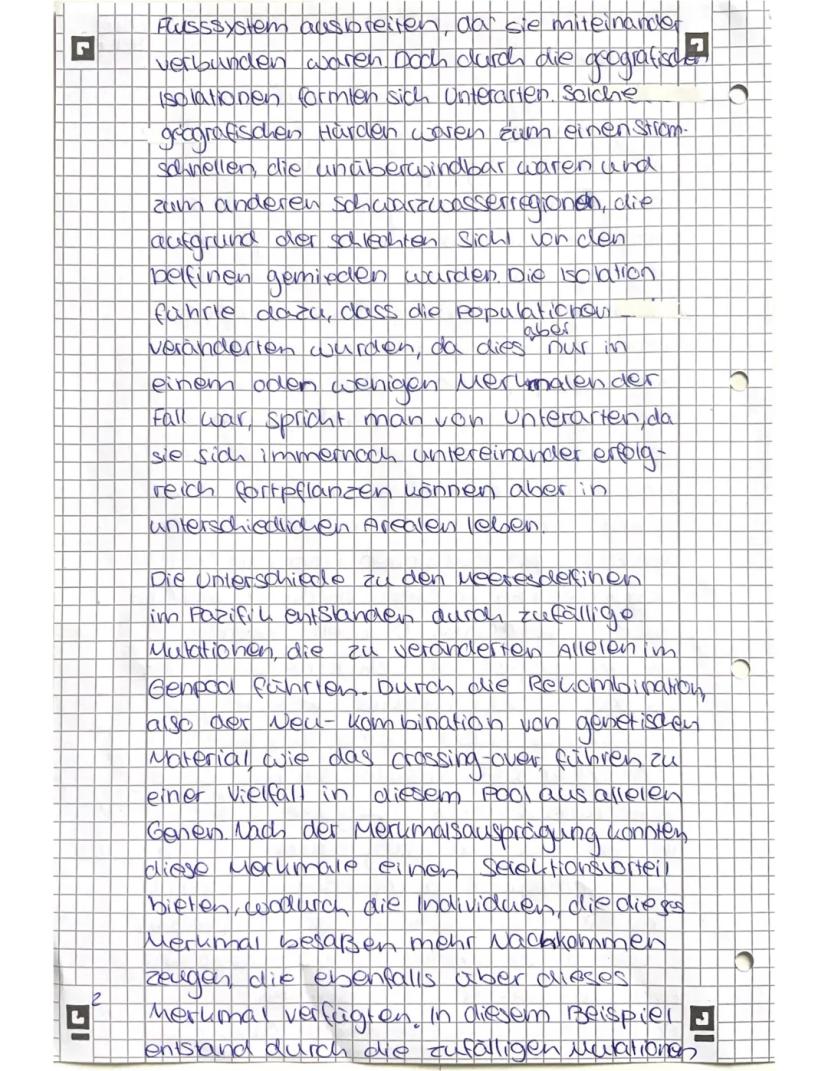 Flusssystem ausbreiten, da sie miteinander
verbunden waren. Doch durch die geografischen
Isolationen formten sich Unterarten. Solche
geografischen Hürden waren zum einen Strom-
schnellen, die unüberwindbar waren und
zum anderen Schwarzwasserregionen, die
aufgrund der schlechten Sicht von den
Delfinen gemieden wurden. Die Isolation
führte dazu, dass die Populationen
aber
veränderten wurden, da dies nur in
einem oden wenigen Merkmalen der
Fall war, spricht man von Unterarten, da
sie sich immernoch untereinander erfolg-
reich fortpflanzen können aber in
unterschiedlichen Arealen leben.
Die Unterschiede zu den Meeresdelfinen
im Pazifik entstanden durch zufällige
Mutationen, die zu veränderten Allelen im
Genpool führten. Durch die Rekombination,
also der Neu-kombination von genetischen
Material, wie das crossing-over, führen zu
einer Vielfalt in diesem Pool aus allelen
Genen. Nach der Merkmalsausprägung konnten
diese Merkmale einen Selektionsvorteil
bieten, wodurch die Individuen, die dieses
Merkmal besaßen mehr Nachkommen
zeugen, die ebenfalls über dieses
2
Merkmal verfügten. In diesem Beispiel
entstand durch die zufälligen Mutationen